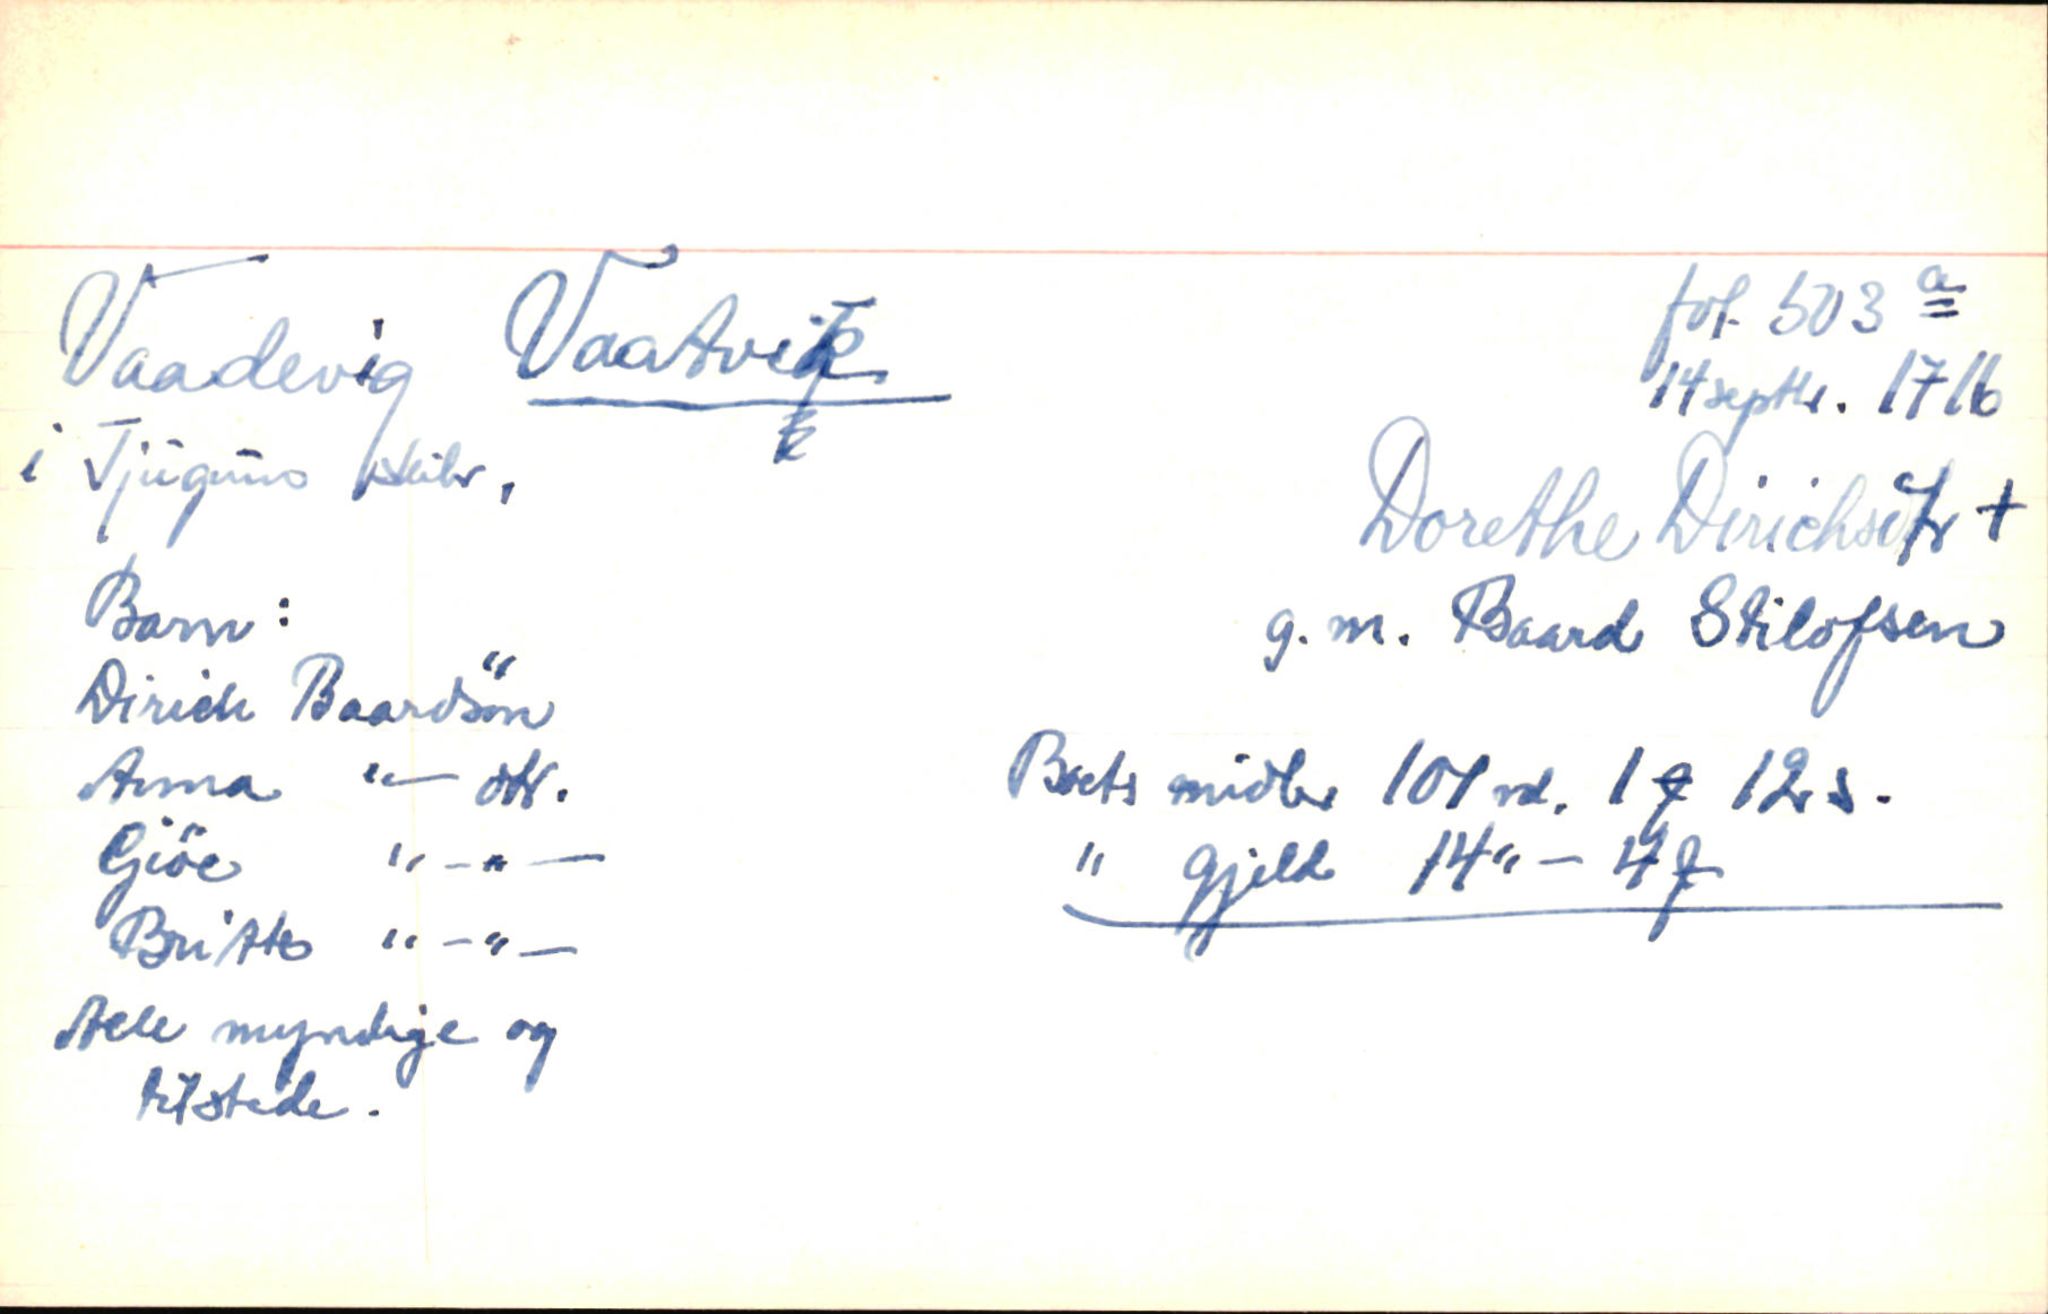 Vaadevig Vaatvik
fol. 503 a
14 septbr. 1716
i Tjugums skibr,
Dorethe Dirichsdtr +
g. m. Baard Stilofsen
Barn:
Dirich Baardsön
Anna "— dtr.
Giöe " — " —
Britte " — " —
Alle myndige og
tilstede.
Boets midler 101 rd. 1 12 s.
" Gjeld 14 " — 4